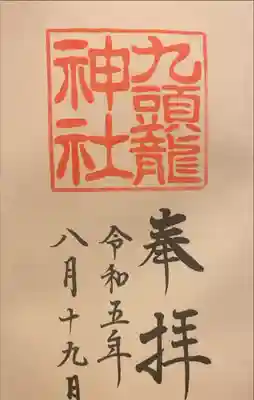 九頭龍
神社
奉拝
令和五年
八月十九日